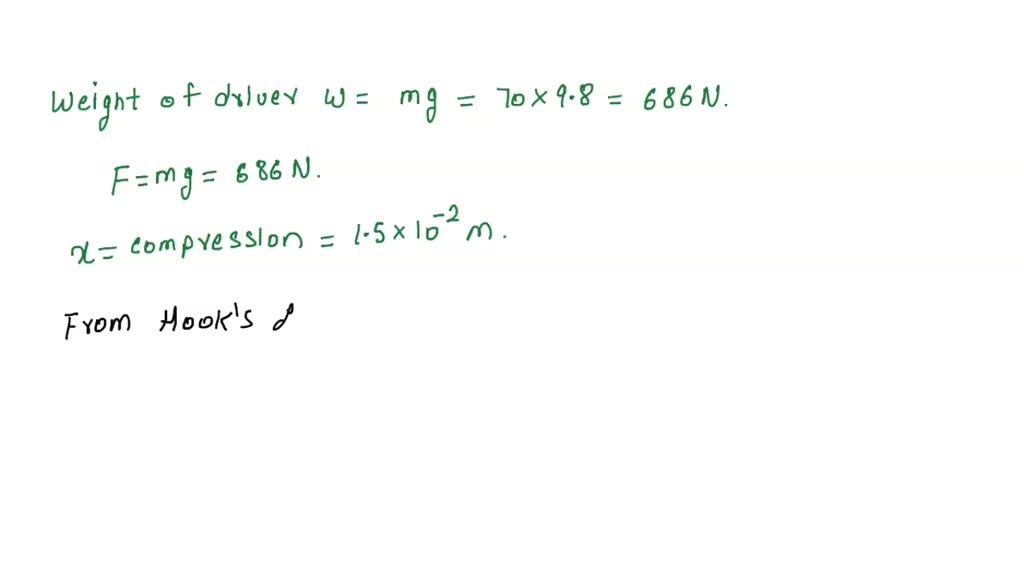 Weight of driver W = mg = 70 × 9.8 = 686 N.
F = mg = 686 N.
x = compression = 1.5 × 10⁻² m.
From Hook's